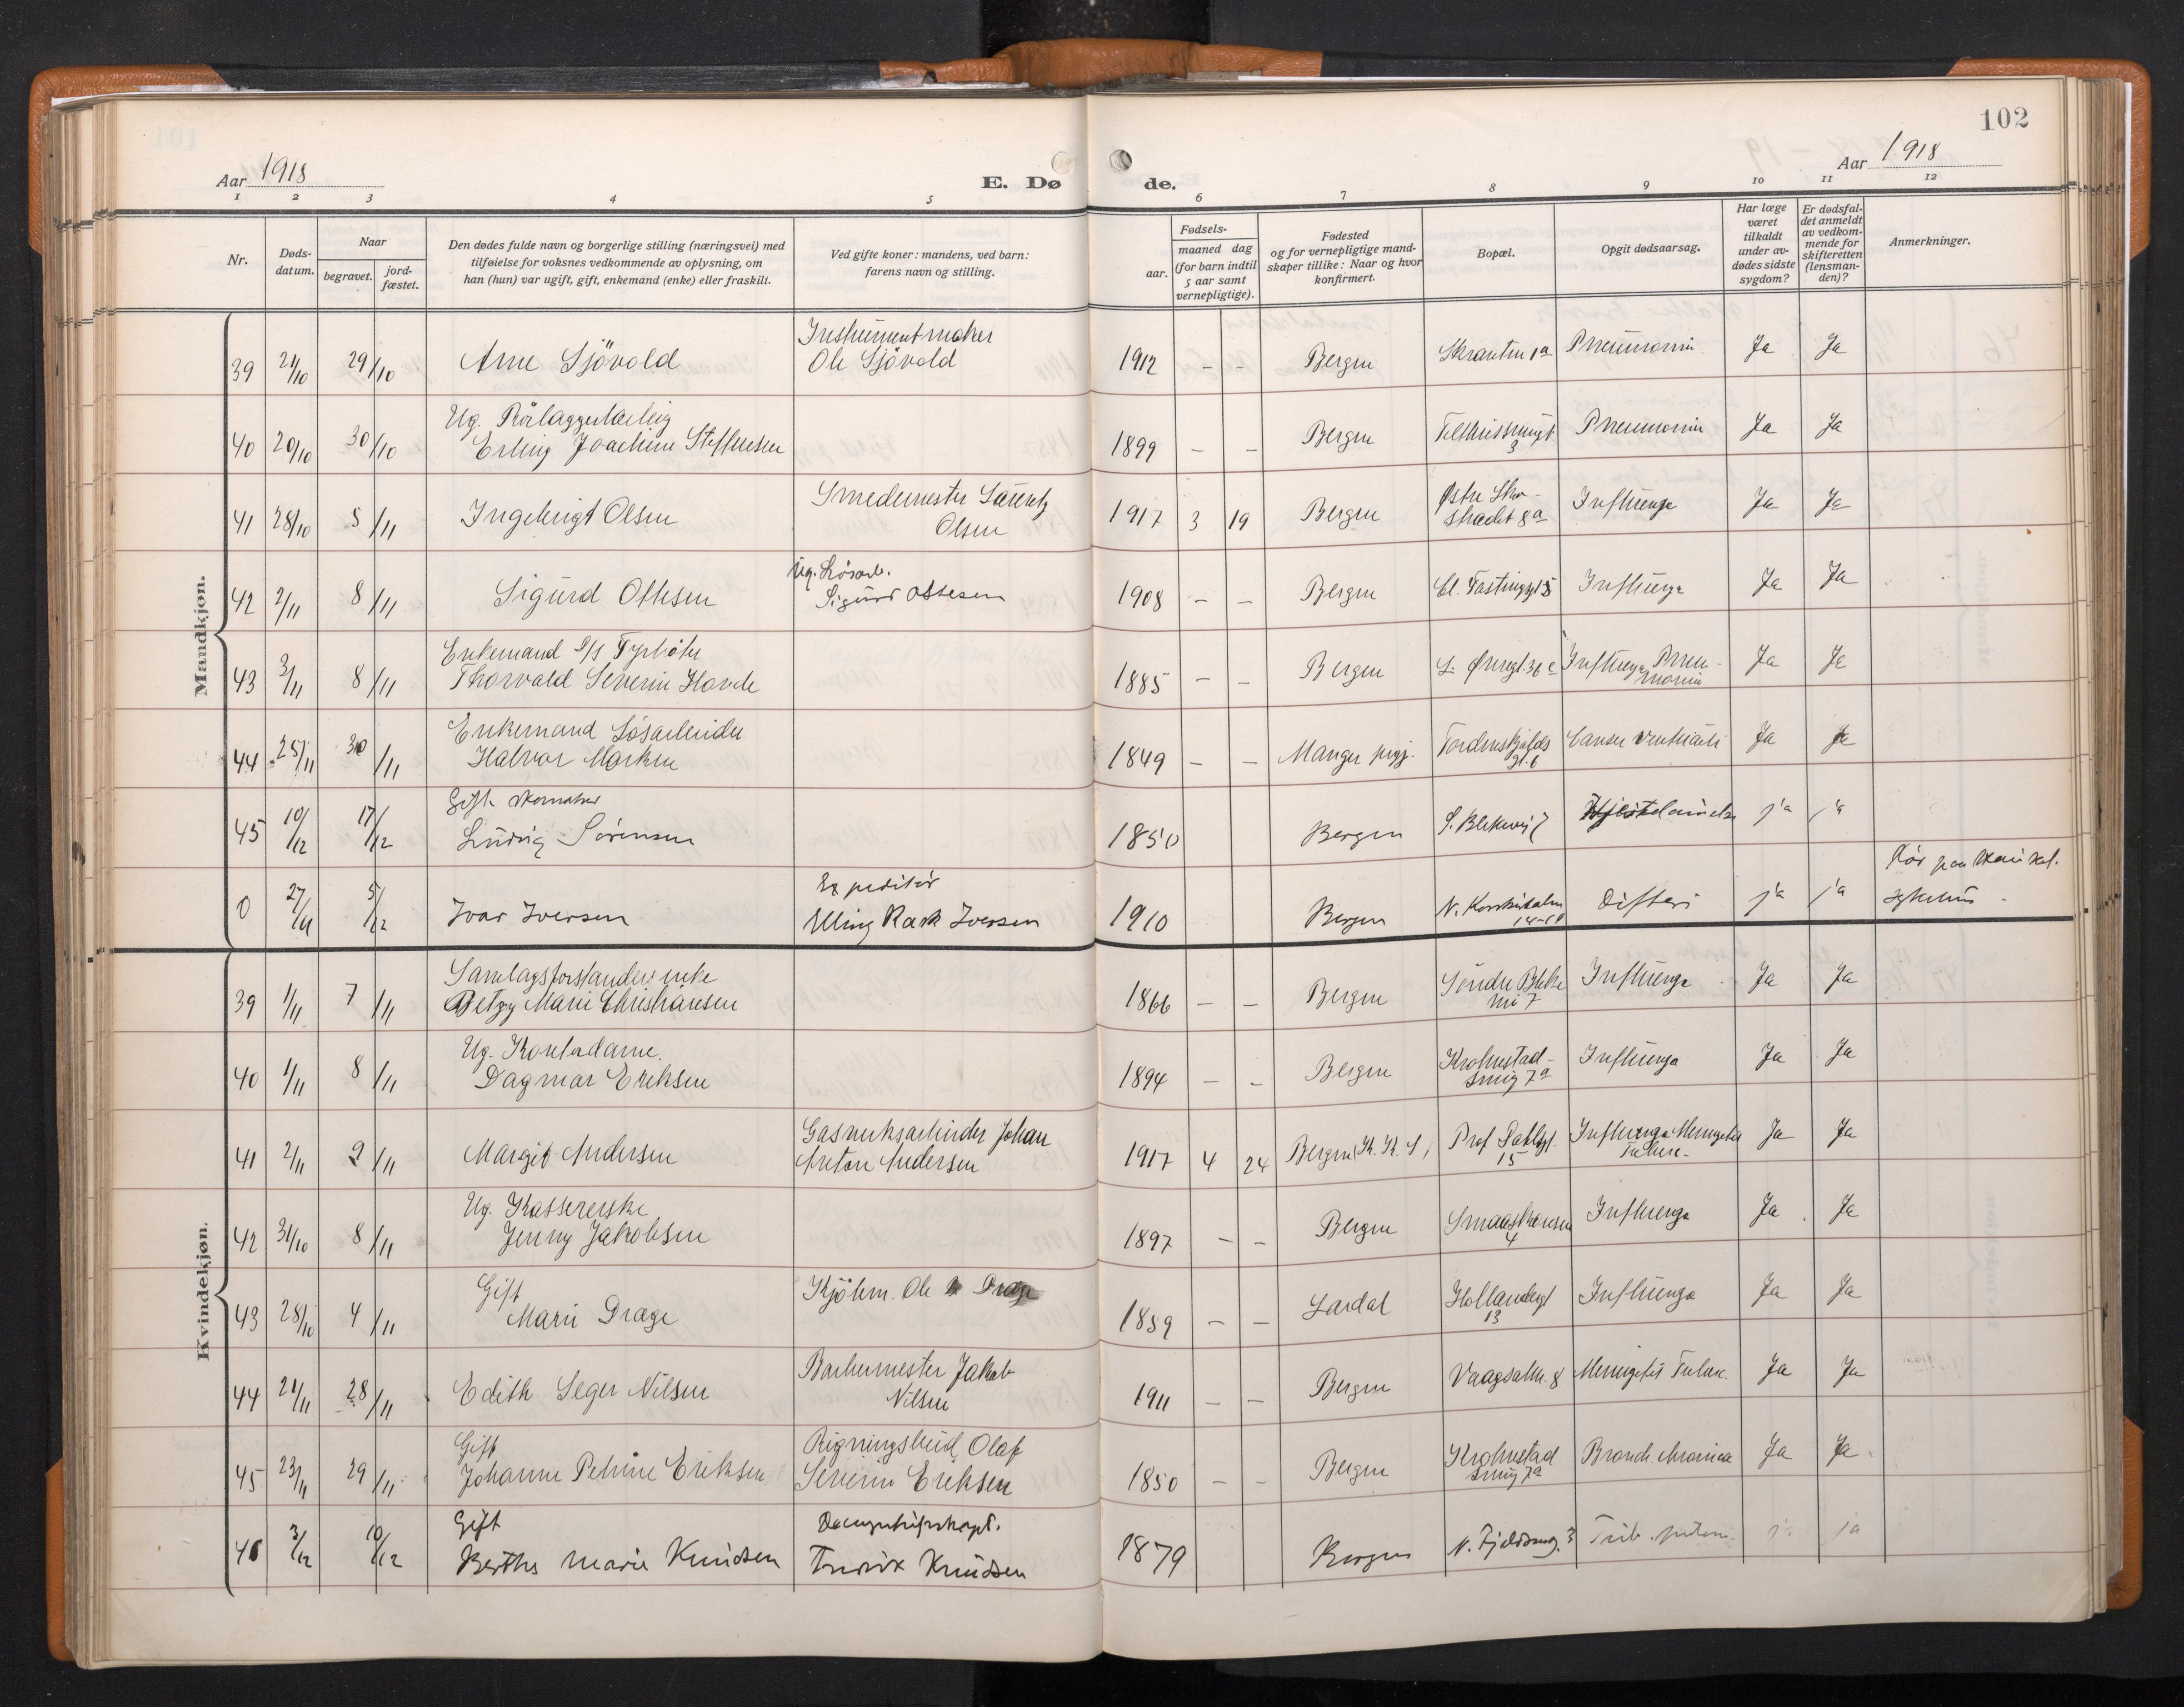 102
Aar 1918
E. Døde.
Aar 1918
1 2 3 4 5 6 7 8 9 10 11 12
Nr.
Døds-
datum.
Naar
begravet.
jord-
fæstet.
Den dødes fulde navn og borgerlige stilling (næringsvei) med
tilføielse for voksnes vedkommende av oplysning, om
han (hun) var ugift, gift, enkemand (enke) eller fraskilt.
Ved gifte koner: mandens, ved barn:
farens navn og stilling.
Fødsels-
aar.
maaned dag
(for barn indtil
5 aar samt
vernepligtige).
Fødested
og for vernepligtige mand-
skaper tillike: Naar og hvor
konfirmert.
Bopæl.
Opgit dødsaarsag.
Har læge
været
tilkaldt
under av-
dødes sidste
sygdom?
Er dødsfal-
det anmeldt
av vedkom-
mende for
skifteretten
(lensman-
den)?
Anmerkninger.
Mandkjøn.
39 21/10 29/10 Arne Sjövold Instrumentmaker
Ole Sjövold 1912 – – Bergen 1a Pneumonia Ja Ja
40 20/10 30/10 Ug.
Erling Joachim Steffensen 1899 – – Bergen 3 Pneumonia Ja Ja
41 28/10 5/11 Ingebrigt Olsen Smedemester Lauretz
Olsen 1917 3 19 Bergen Østre Sko-
stradet 8a Influenza Ja Ja
42 2/11 8/11 Sigurd Ottesen Ug. Lösarb.
Sigurd Ottesen 1908 – – Bergen Influenza Ja Ja
43 3/11 8/11 Enkemand D/S Fyrböter
Thorvald Severin Hovde 1885 – – Bergen Influenza Pneu-
monia Ja Ja
44 25/11 30/11 Enkemand Lösarbeider
Halvor Marken 1849 – – Manger prgj. Tordenskjolds
gt. 6 Cancer ventriculi Ja Ja
45 10/12 17/12 Gift Skomaker
Ludvig Sörensen 1850 Bergen S. Blekevei 7 ja ja
0 27/11 5/12 Ivar Iversen Expeditör
Elling Rask Iversen 1910 Bergen N. Korskirkealm Difteri ja ja
sykehus
Kvindekjøn.
39 1/11 7/11 Samlagsforstander enke
Betzy Marie Christiansen 1866 – – Bergen Söndre Bleke
vei 7 Influenza Ja Ja
40 1/11 8/11 Ug. Kontordame.
Dagmar Eriksen 1894 – – Bergen Krohnstad-
smug 7a Influenza Ja Ja
41 2/11 9/11 Margit Andersen Gasverksarbeider Johan
Anton Andersen 1917 4 24 Bergen (K. K. S.) Prof Dahlsgt.
15 Influenza Meningitis
Tuberc. Ja Ja
42 31/10 8/11 Ug. Kassererske
Jenny Jakobsen 1897 – – Bergen Smaaskansen
4 Influenza Ja Ja
43 28/10 4/11 Gift
Marie Drage Kjöbm. Ole Drage 1859 – – Lærdal Hollendergt
13 Influenza Ja Ja
44 21/11 28/11 Edith Seger Nilsen Barbermester Jakob
Nilsen 1911 – – Bergen Vaagsalm. 8 Meningitis Tuberc. Ja Ja
45 23/11 29/11 Gift
Johanne Petrine Eriksen Rigningsbud Olaf
Severin Eriksen 1850 – – Bergen Krohnstad
smug 7a Bronch. chronica Ja Ja
46 3/12 10/12 Gift
Berthe Marie Knudsen
Fredrik Knudsen 1879 Bergen N. Fjeldsmug. 3 Tub. pulm. ja ja